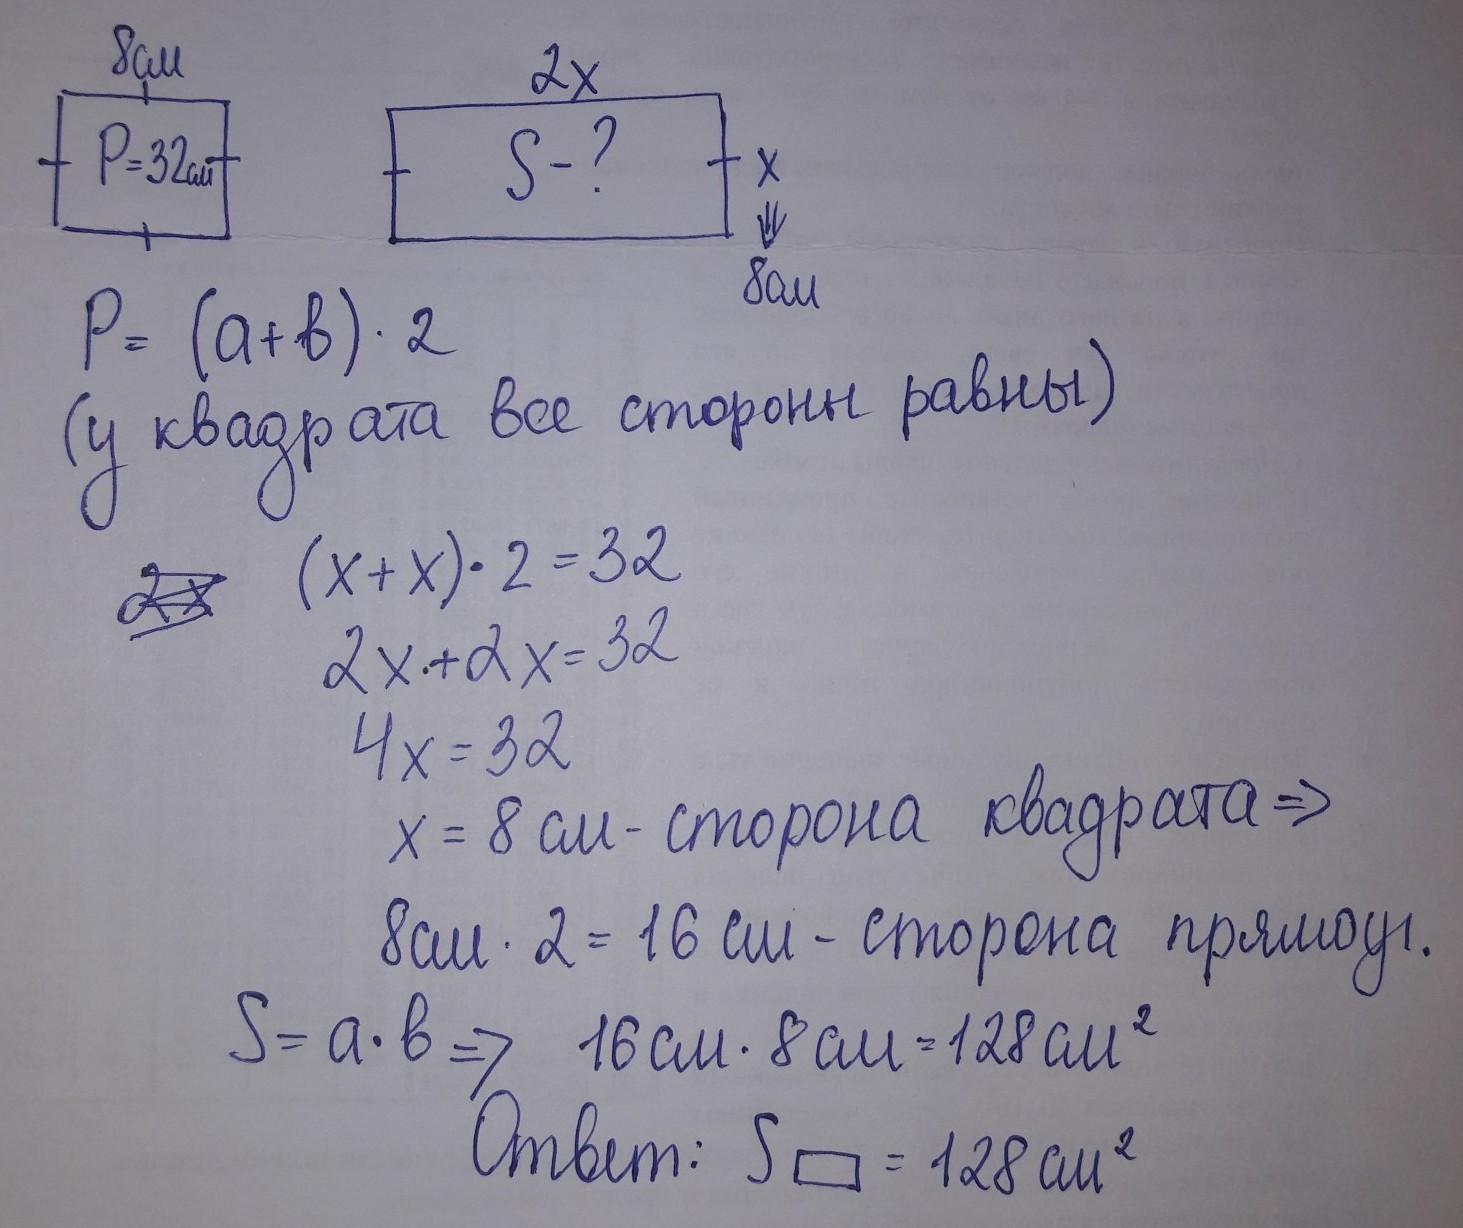 8см
P=32см
2x
S-?
x
8см
P= (a+в)·2
(у квадрата все стороны равны)
(x+x)·2=32
2x+2x=32
4x=32
x=8см- сторона квадрата=>
8см·2=16см- сторона прямоуг.
S=a·в=> 16см·8см=128см²
Ответ: S▭=128см²